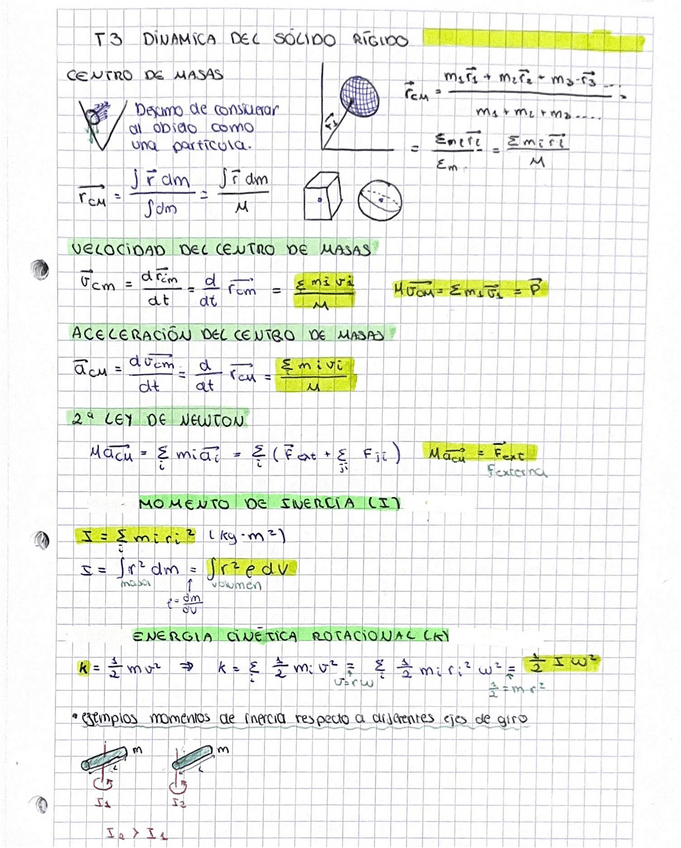 T3 DINAMICA DEL SÓLIDO RÍGIDO
CENTRO DE MASAS
Dejamo de considerar
al objeto como
una partícula.
r⃗cм = (m₁r⃗₁ + m₂r⃗₂ + m₃·r⃗₃ ...) / (m₁ + m₂ + m₃ ....) =
= Σmir⃗i / Σm = Σmir⃗i / M
r⃗₁
r⃗cм = ∫r⃗ dm / ∫dm = ∫r⃗ dm / M
VELOCIDAD DEL CENTRO DE MASAS
v⃗cm = dr⃗cm / dt = d/dt r⃗cm = Σmivi / M
Mv⃗cм = Σm₁v⃗₁ = P⃗
ACELERACIÓN DEL CENTRO DE MASAS
a⃗cм = dv⃗cm / dt = d/dt r⃗cм = Σmivi / M
2ª LEY DE NEWTON
Ma⃗cм = Σi mia⃗i = Σi (F⃗ext + Σji Fji)
Ma⃗cм = F⃗ext
Fexterna
MOMENTO DE INERCIA (I)
I = Σi miri² (kg·m²)
I = ∫r² dm = ∫r² ρ dV
masa
volumen
ρ = dm/dV
ENERGIA CINÉTICA ROTACIONAL (K)
k = 1/2 mv² ⇒ k = Σi 1/2 miv² = Σi 1/2 miri² ω² = 1/2 I ω²
v=rω
1/2 = mr²
• ejemplos momentos de inercia respecto a diferentes ejes de giro
m
L
m
L
I₁
I₂
I₂ > I₁